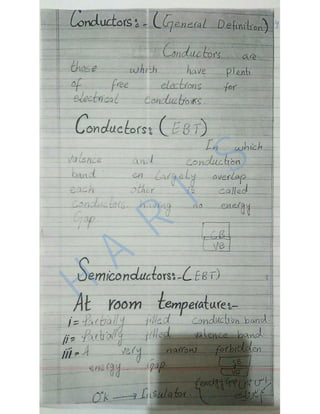 Conductors:-(General Definition)
Conductors are
those which have plenti
of free electrons for
electrical conductions.
Conductors: (EBT)
In which
valance and conduction
band on largely overlap
each other is called
conductors having no energy
Gap.
CB
VB
Semiconductors:-(EBT)
At room temperature:-
i= Partially filled conduction band
ii= Partially filled valence band
iii= A very narrow forbidden
energy gap
CB
VB
0°k → Insulator
HARIS